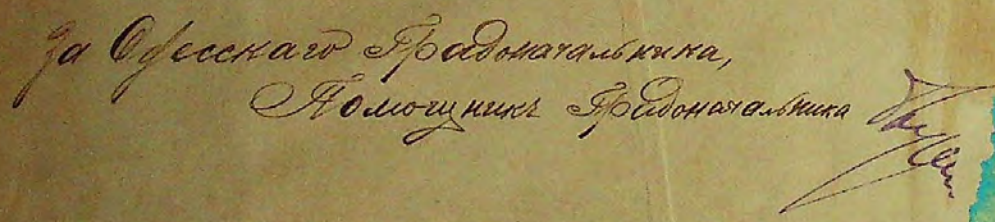 За Одесскаго Градоначальника,
Помощникъ Градоначальника